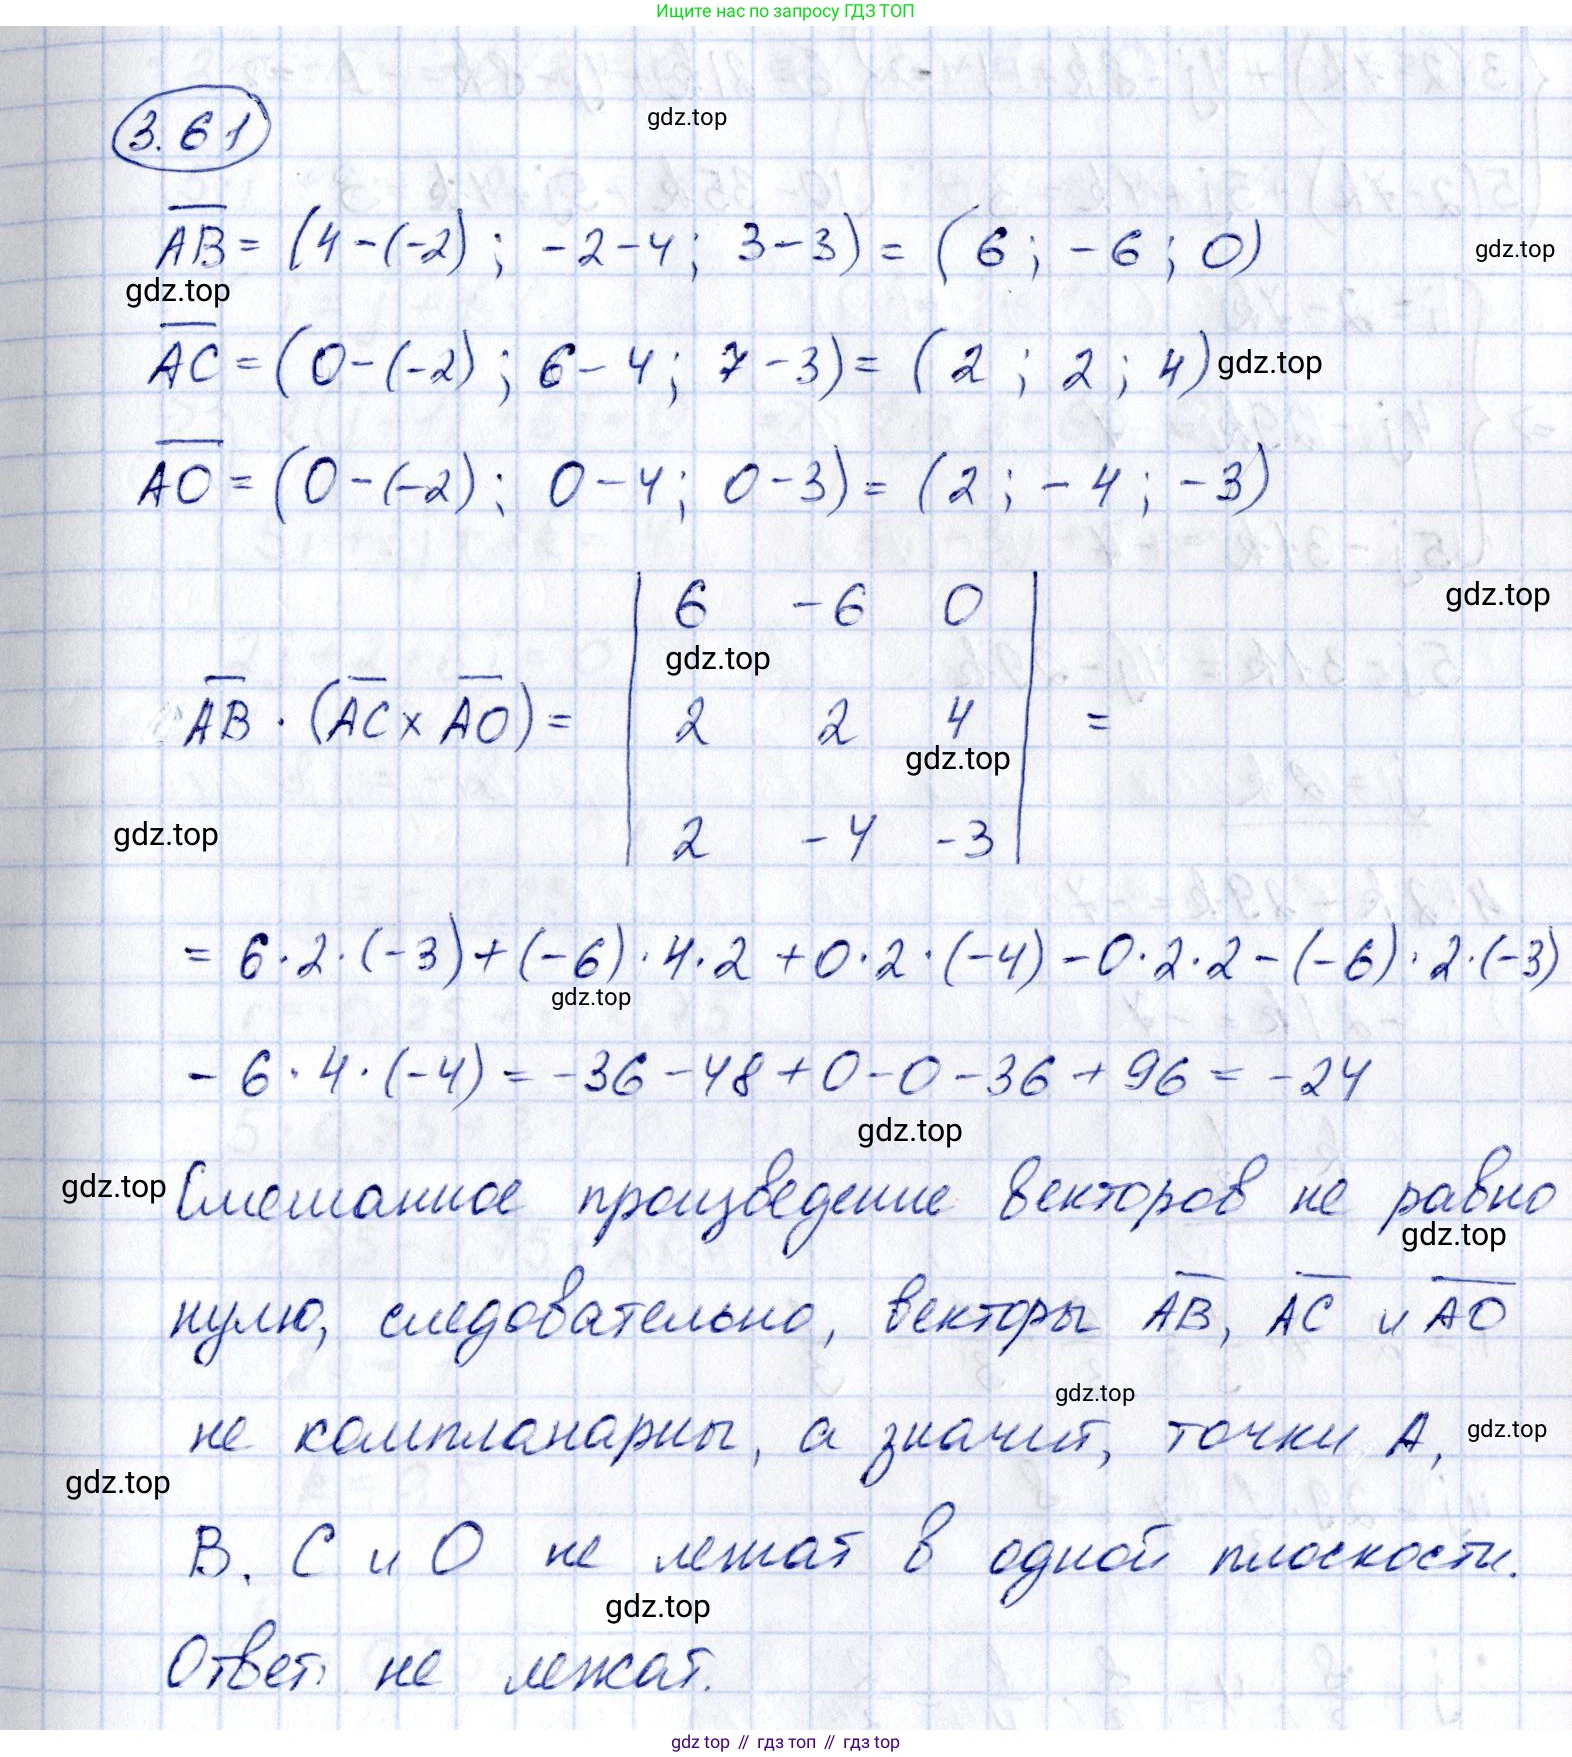 Ищите нас по запросу ГДЗ ТОП
3.61
gdz.top
AB = (4-(-2); -2-4; 3-3) = (6; -6; 0)
gdz.top
gdz.top
AC = (0-(-2); 6-4; 7-3) = (2; 2; 4)
gdz.top
AO = (0-(-2); 0-4; 0-3) = (2; -4; -3)
gdz.top
6 -6 0
gdz.top
AB · (AC × AO) = 2 2 4 =
gdz.top
gdz.top
2 -4 -3
= 6·2·(-3)+(-6)·4·2+0·2·(-4)-0·2·2-(-6)·2·(-3)
gdz.top
-6·4·(-4) = -36-48+0-0-36+96 = -24
gdz.top
gdz.top
Смешанное произведение векторов не равно
gdz.top
нулю, следовательно, векторы AB, AC и AO
gdz.top
не компланарны, а значит, точки A,
gdz.top
gdz.top
B, C и O не лежат в одной плоскости.
gdz.top
Ответ: не лежат.
gdz top // гдз топ // гдз top